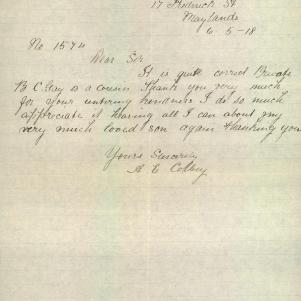 17 Frederick St
Maylands
6-5-18
No 1574
Dear Sir
It is quite correct Private
B C Gay is a cousin Thank you very much
for your untiring kindness I do so much
appreciate it hearing all I can about my
very much loved son again thanking you
Yours Sincerely
A E Colley